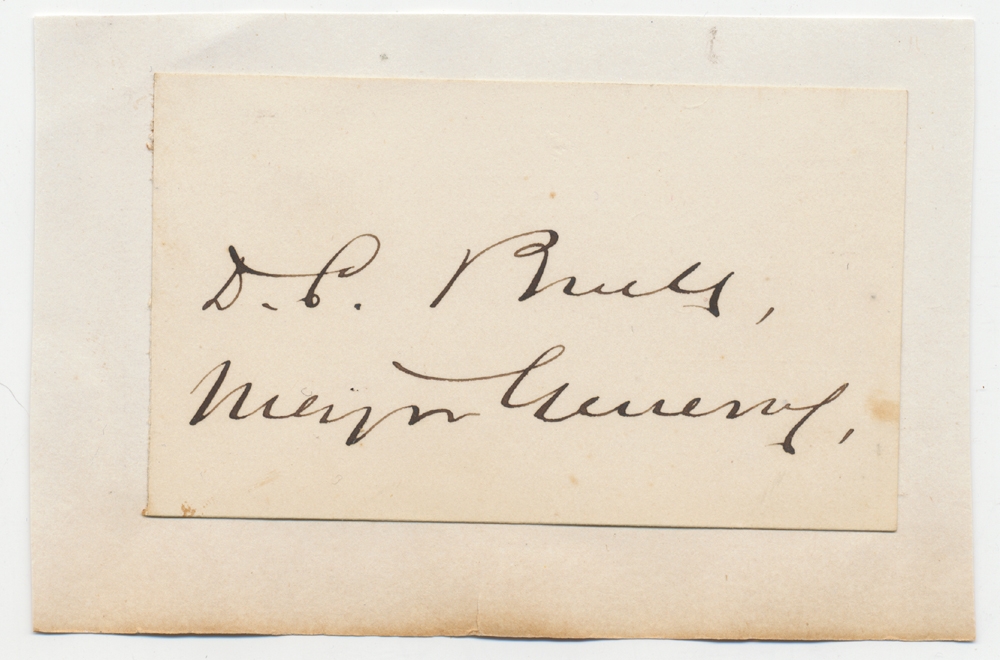 D. C. Buell,
Major General,